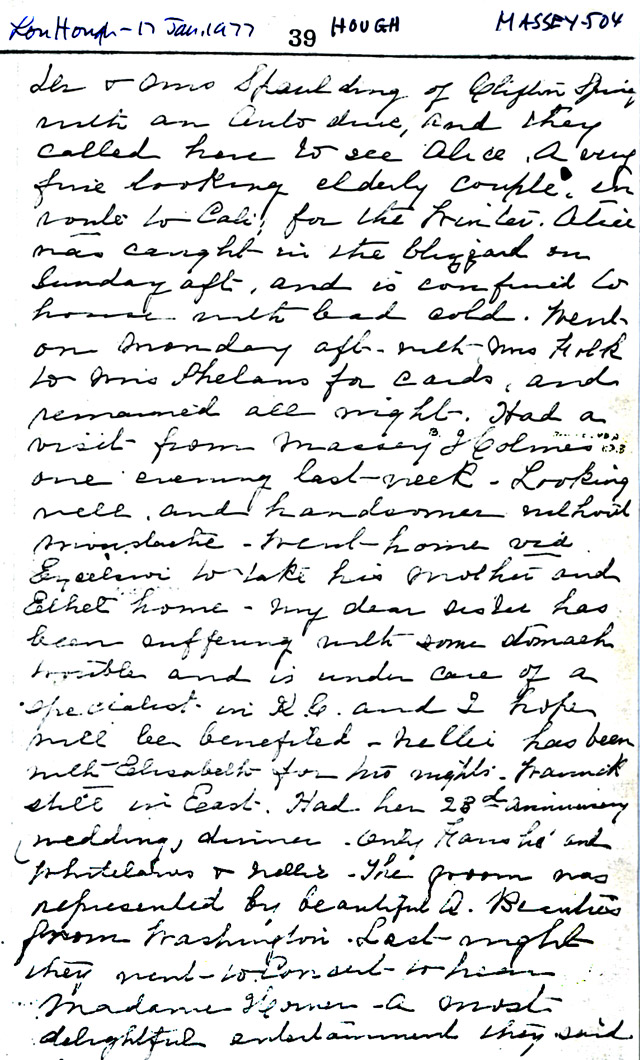 Lou Hough - 17 Jan. 1977 39 HOUGH MASSEY-504
Dr & Mrs Spaulding of Clifton Spring
with an Auto drive, and they
called here to see Alice. A very
fine looking elderly couple. En
route to Cali, for the Winter. Alice
was caught in the blizzard on
Sunday aft, and is confined to
house with bad cold. Went
on Monday aft - with Mrs Folk
to Mrs Phelans for cards, and
remained all night. Had a
visit from Massey B. Holmes
one evening last week - Looking
well, and handsomer without
moustache - Went home via
Excelsior to take his Mother and
Ethel home - My dear sister has
been suffering with some stomach
trouble and is under care of a
specialist in K.C. and I hope
will be benefited - Nellie has been
with Elisabeth for two nights - Warwick
still in East. Had her 23d anniversary
(wedding) dinner - only and
Whitelaws & Nellie - The groom was
represented by beautiful A. Beauties
from Washington. Last night
they went to Concert to hear
Madame Homer - A most
delightful entertainment they said